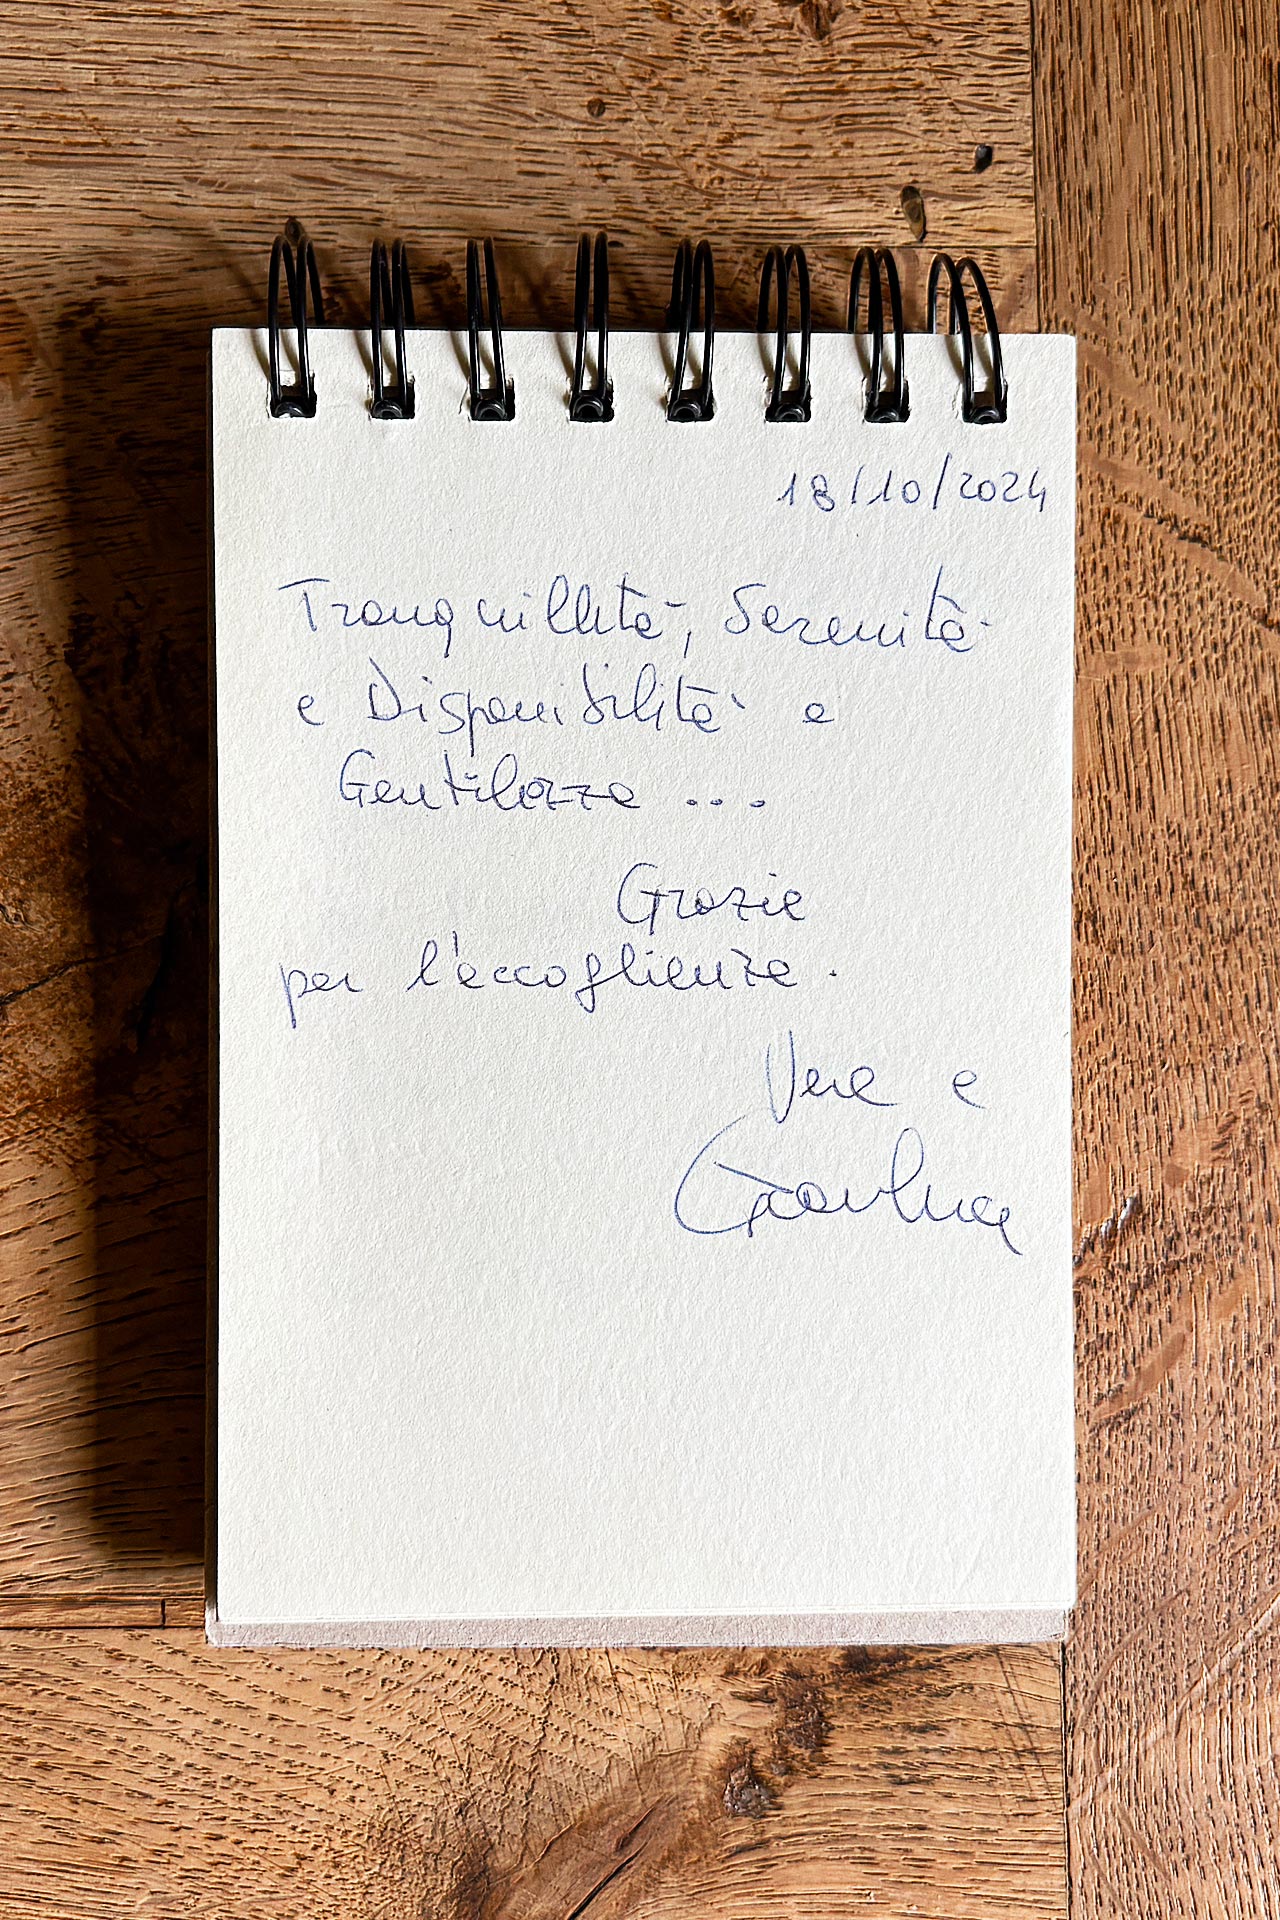 18/10/2024
Tranquillità, Serenità
e Disponibilità e
Gentilezza ...
Grazie
per l'accoglienza.
Vera e
Gianluca